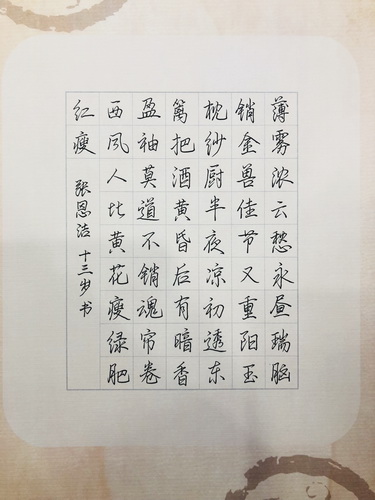 薄雾浓云愁永昼瑞脑
销金兽佳节又重阳玉
枕纱厨半夜凉初透东
篱把酒黄昏后有暗香
盈袖莫道不销魂帘卷
西风人比黄花瘦绿肥
红瘦 张恩洁 十三岁书